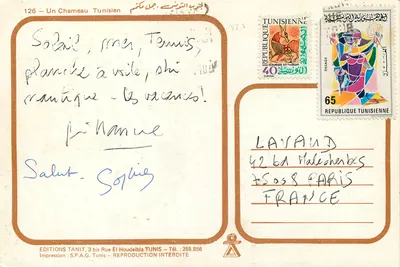 126 - Un Chameau Tunisien
Soleil, mer, Tennis,
planche à voile, ski
nautique - les vacances!
Salut - Sophie
REPUBLIQUE TUNISIENNE
40
65
REPUBLIQUE TUNISIENNE
LAVAUD
42 Bd Malesherbes
75008 PARIS
FRANCE
EDITIONS TANIT, 3 bis Rue El Houdeibia TUNIS - Tél. :
Impression : S.P.A.G. Tunis - REPRODUCTION INTERDITE